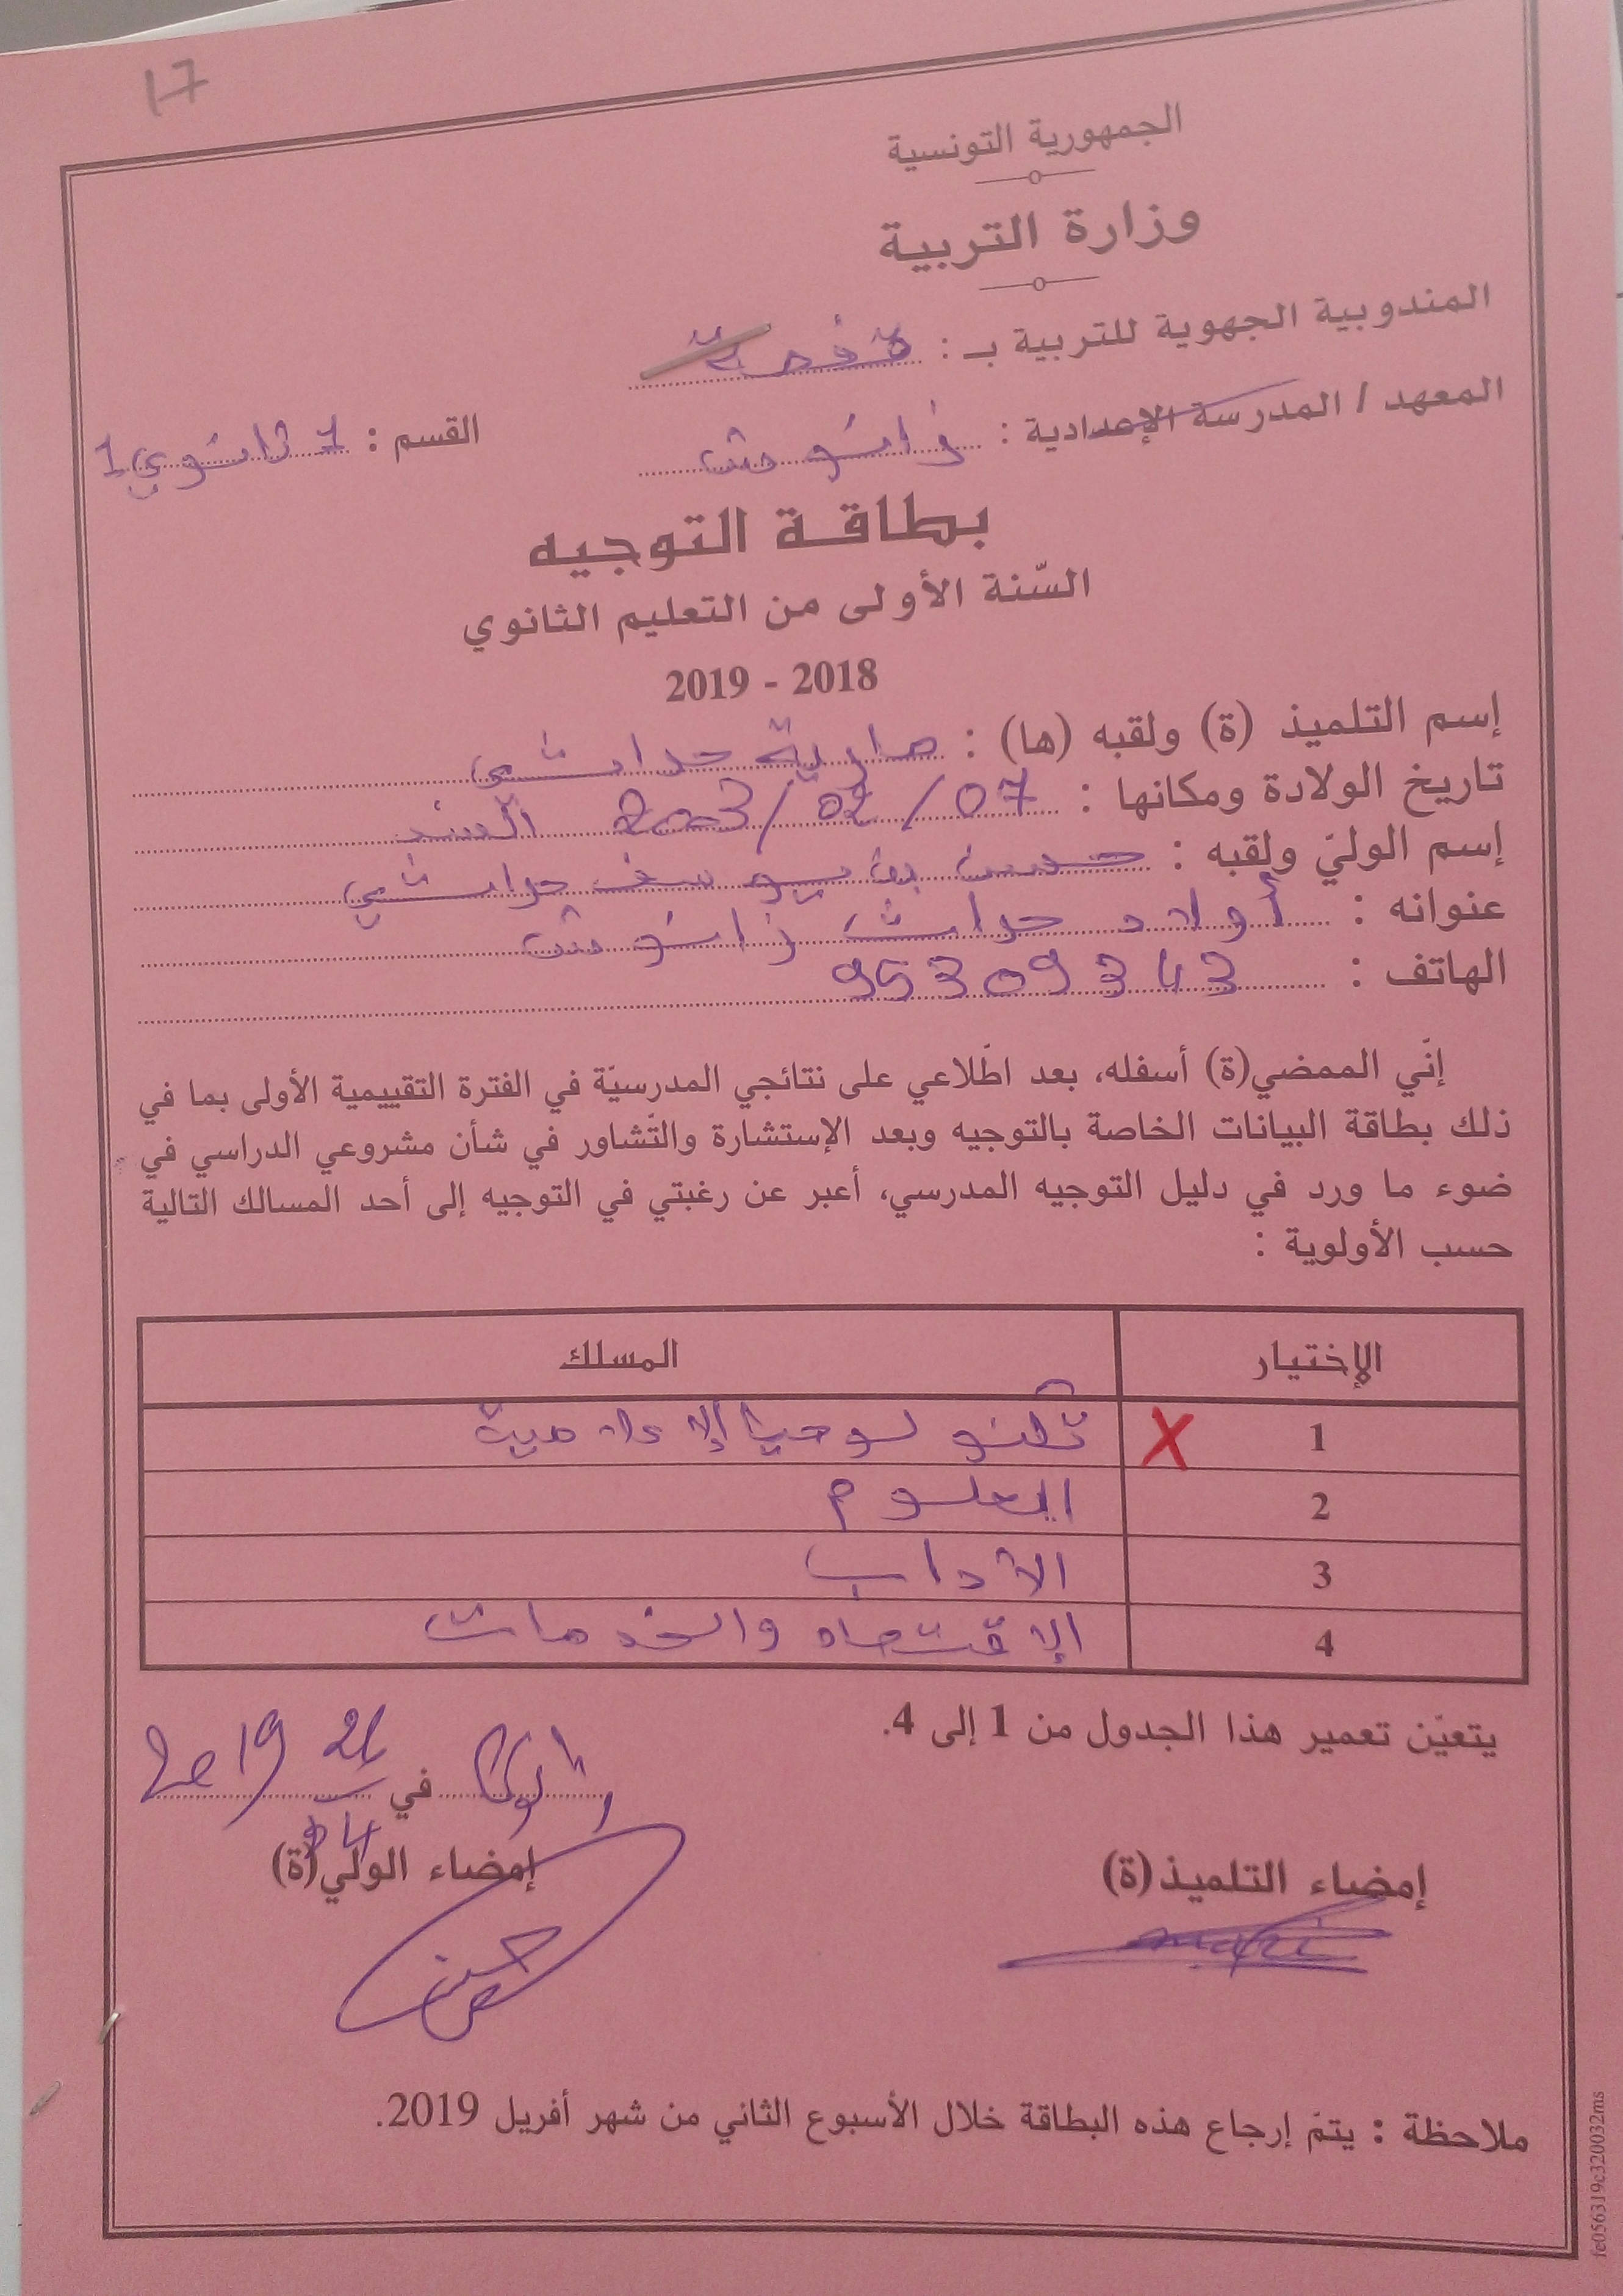 17
الجمهورية التونسية
وزارة التربية
المندوبية الجهوية للتربية بـ : قفصة
المعهد / المدرسة الإعدادية : زانوش
القسم : 1 ثانوي 1
بطاقة التوجيه
السّنة الأولى من التعليم الثانوي
2019 - 2018
إسم التلميذ (ة) ولقبه (ها) : مارية حراثي
تاريخ الولادة ومكانها : 07 / 02 / 2003 السند
إسم الوليّ ولقبه : حسن بن يوسف حراثي
عنوانه : أولاد حراث زانوش
الهاتف : 95309343
إنّي الممضي(ة) أسفله، بعد اطّلاعي على نتائجي المدرسيّة في الفترة التقييمية الأولى بما في
ذلك بطاقة البيانات الخاصة بالتوجيه وبعد الإستشارة والتّشاور في شأن مشروعي الدراسي في
ضوء ما ورد في دليل التوجيه المدرسي، أعبر عن رغبتي في التوجيه إلى أحد المسالك التالية
حسب الأولوية :
الإختيار المسلك
1 X تكنولوجيا الإعلامية
2 العلوم
3 الآداب
4 الإقتصاد والخدمات
يتعيّن تعمير هذا الجدول من 1 إلى 4.
في 26 04 2019
إمضاء التلميذ(ة) إمضاء الولي(ة)
حسن
ملاحظة : يتمّ إرجاع هذه البطاقة خلال الأسبوع الثاني من شهر أفريل 2019.
fe056319c320032ms